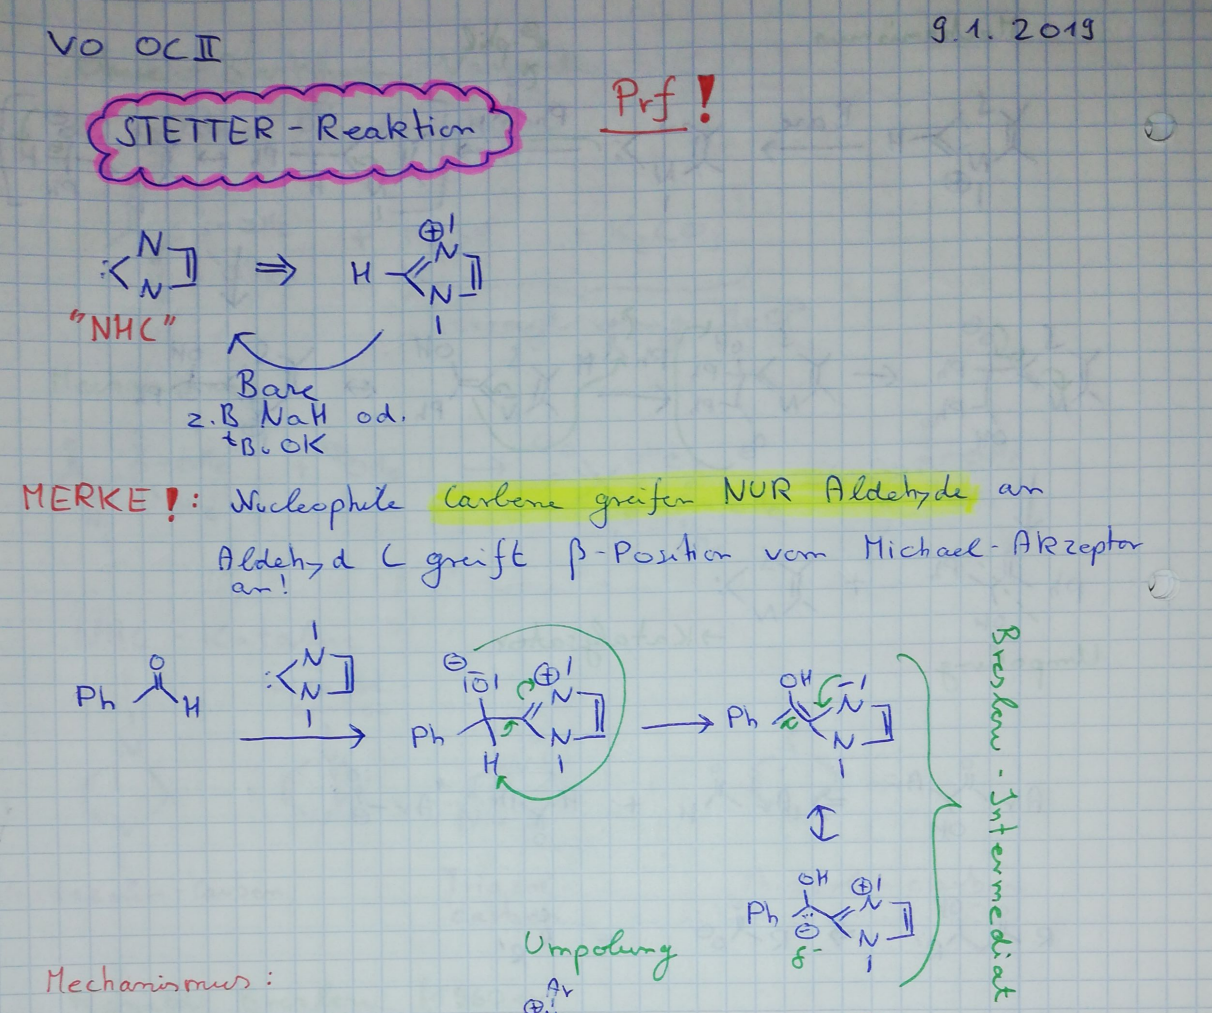 VO OC II
9.1.2019
STETTER - Reaktion
Prf!
N
N
⇒
H
⊕
N
N
"NHC"
Base
z.B NaH od.
tBuOK
MERKE!: Nucleophile Carbene greifen NUR Aldehyde an
Aldehyd C greift β-Position vom Michael-Akzeptor
an!
Ph
O
H
N
N
⊖
|O|
⊕
N
Ph
H
N
OH
N
Ph
N
Breslow-Intermediat
OH
⊕
N
Ph
⊖
N
δ-
Umpolung
Mechanismus:
⊕
Ar